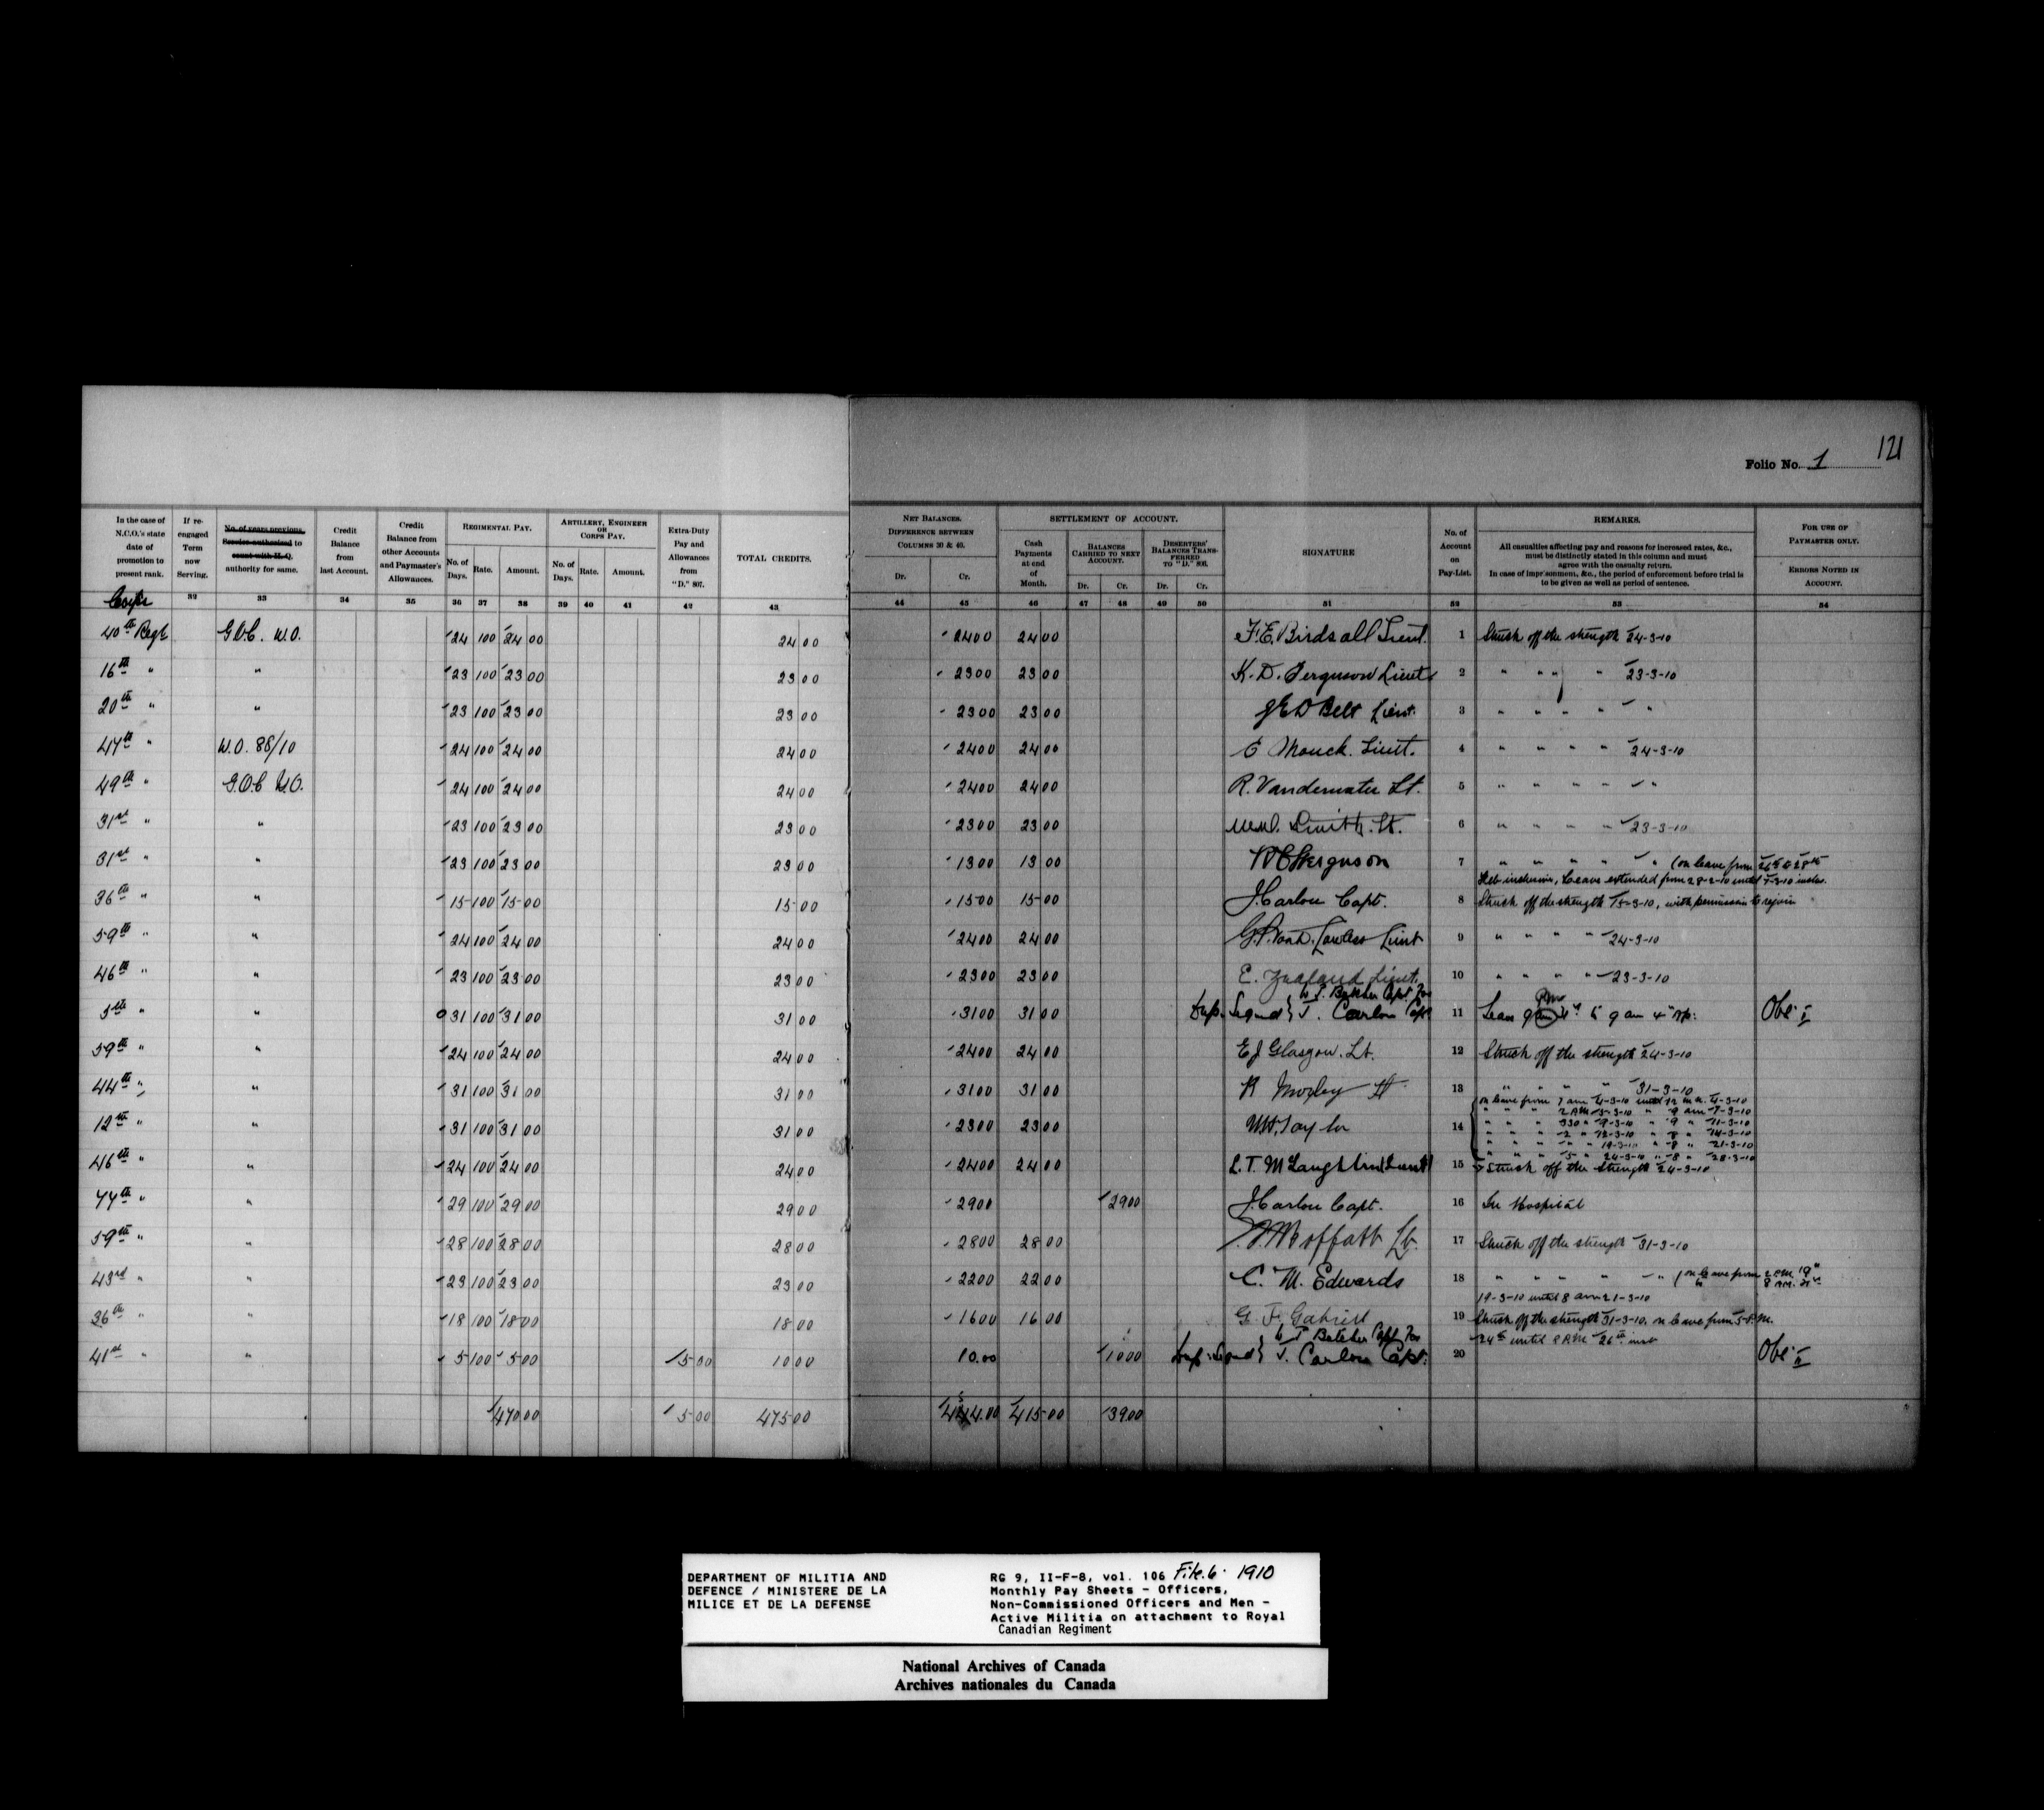 121
Folio No. 1
In the case of N.C.O.'s state date of promotion to present rank.
If re-engaged Term now Serving.
No. of years previous Service authorized to count with H.Q. authority for same.
Credit Balance from last Account.
Credit Balance from other Accounts and Paymaster's Allowances.
REGIMENTAL PAY.
No. of Days. Rate. Amount.
ARTILLERY, ENGINEER OR CORPS PAY.
No. of Days. Rate. Amount.
Extra-Duty Pay and Allowances from "D." 807.
TOTAL CREDITS.
NET BALANCES. DIFFERENCE BETWEEN COLUMNS 30 & 40.
Dr. Cr.
SETTLEMENT OF ACCOUNT.
Cash Payments at end of Month.
BALANCES CARRIED TO NEXT ACCOUNT.
Dr. Cr.
DESERTERS' BALANCES TRANSFERRED TO "D." 806.
Dr. Cr.
SIGNATURE
No. of Account on Pay-List.
REMARKS.
All casualties affecting pay and reasons for increased rates, &c., must be distinctly stated in this column and must agree with the casualty return.
In case of imprisonment, &c., the period of enforcement before trial is to be given as well as period of sentence.
FOR USE OF PAYMASTER ONLY.
ERRORS NOTED IN ACCOUNT.
Corps 32 33 34 35 36 37 38 39 40 41 42 43 44 45 46 47 48 49 50 51 52 53 54
40th Regt G.O.C. W.O. 24 100 24 00 24 00 24 00 24 00 F. E. Birdsall Lieut. 1 Struck off the strength 24-3-10
16th " " 23 100 23 00 23 00 23 00 23 00 K. D. Ferguson Lieut 2 " " " " 23-3-10
20th " " 23 100 23 00 23 00 23 00 23 00 J E D Belt Lieut. 3 " " " " " "
47th " W.O. 88/10 24 100 24 00 24 00 24 00 24 00 C Monck. Lieut. 4 " " " " 24-3-10
49th " G.O.C W.O. 24 100 24 00 24 00 24 00 24 00 R. Vandewater Lt. 5 " " " " " "
31st " " 23 100 23 00 23 00 23 00 23 00 Smith. Lt. 6 " " " " 23-3-10
31st " " 23 100 23 00 23 00 13 00 13 00 Ferguson 7 " " " " " " (on leave from 26th to 28th
Feb inclusive, Leave extended from 28-2-10 until 7-3-10 inclus.
36th " " 15 100 15 00 15 00 15 00 15 00 J. Carlou Capt. 8 Struck off the strength 15-3-10, with permission to rejoin
59th " " 24 100 24 00 24 00 24 00 24 00 Lawless Lieut 9 " " " " 24-3-10
46th " " 23 100 23 00 23 00 23 00 23 00 E. Zealand Lieut. 10 " " " " 23-3-10
W. T. Butcher Capt for
5th " " 31 100 31 00 31 00 31 00 31 00 Dup. Signed } J. Carlou Capt 11 Leave 9 pm to 9 am Obs. I
59th " " 24 100 24 00 24 00 24 00 24 00 E J Glasgow. Lt. 12 Struck off the strength 24-3-10
44th " " 31 100 31 00 31 00 31 00 31 00 R Morley Lt 13 " " " " 31-3-10
on leave from 7 am 4-3-10 until 12 m.n. 4-3-10
" " " 2 P.M 5-3-10 " 9 am 7-3-10
12th " " 31 100 31 00 31 00 23 00 23 00 W.H. Taylor 14 " " " 330 " 9-3-10 " 9 " 11-3-10
" " " 2 " 12-3-10 " 8 " 14-3-10
" " " " " 19-3-10 " 8 " 21-3-10
" " " 5 " 24-3-10 " 8 " 28-3-10
46th " " 24 100 24 00 24 00 24 00 24 00 L. T. McLaughlin Lieut 15 Struck off the strength 24-3-10
77th " " 29 100 29 00 29 00 29 00 29 00 J. Carlou Capt. 16 In Hospital
59th " " 28 100 28 00 28 00 28 00 28 00 Moffatt Lt. 17 Struck off the strength 31-3-10
43rd " " 23 100 23 00 23 00 22 00 22 00 C. M. Edwards 18 " " " " " " (on leave from 2 P.M. 19th
to 8 A.M. 21st
19-3-10 until 8 am 21-3-10
36th " " 18 100 18 00 18 00 16 00 16 00 G. F. Gabriel 19 Struck off the strength 31-3-10, on leave from 5 P.M.
24th until 8 P.M 26th inst
W T Butcher Capt for
41st " " 5 100 5 00 5 00 10 00 10.00 10 00 Dup. Signed } J. Carlou Capt. 20 Obs. II
470 00 5 00 475 00 454.00 415 00 39 00
DEPARTMENT OF MILITIA AND
DEFENCE / MINISTERE DE LA
MILICE ET DE LA DEFENSE
RG 9, II-F-8, vol. 106 File 6. 1910
Monthly Pay Sheets - Officers,
Non-Commissioned Officers and Men -
Active Militia on attachment to Royal
Canadian Regiment
National Archives of Canada
Archives nationales du Canada